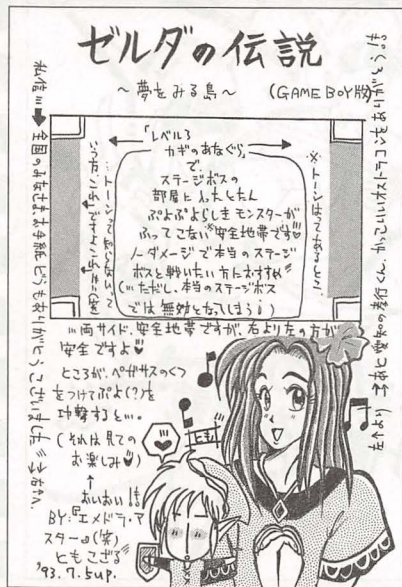 ゼルダの伝説
～夢をみる島～ (GAMEBOY版)
「レベル3
カギのあなぐら」
で
ステージボスの
部屋に入ったとたん
ぷよぷよらしきモンスターが
ふってこない安全地帯です♡
ノーダメージで本当のステージ
ボスと戦いたい方におすすめ
(…ただし、本当のステージボス
では無効となってしまう)
※トーンはってあるところ
…両サイド、安全地帯ですが、右より左の方が
安全ですよ♡
ところが、ペガサスのくつ
をつけてぷよ(?)を
攻撃すると…。
(それは見ての
お楽しみ♡)
↑
おいおい!!
BY:『エメドラ・ア
スター』(笑)
ともこざる
'93.7.5up.
私信…➡全国のみなさまお手紙どうもありがとうございました